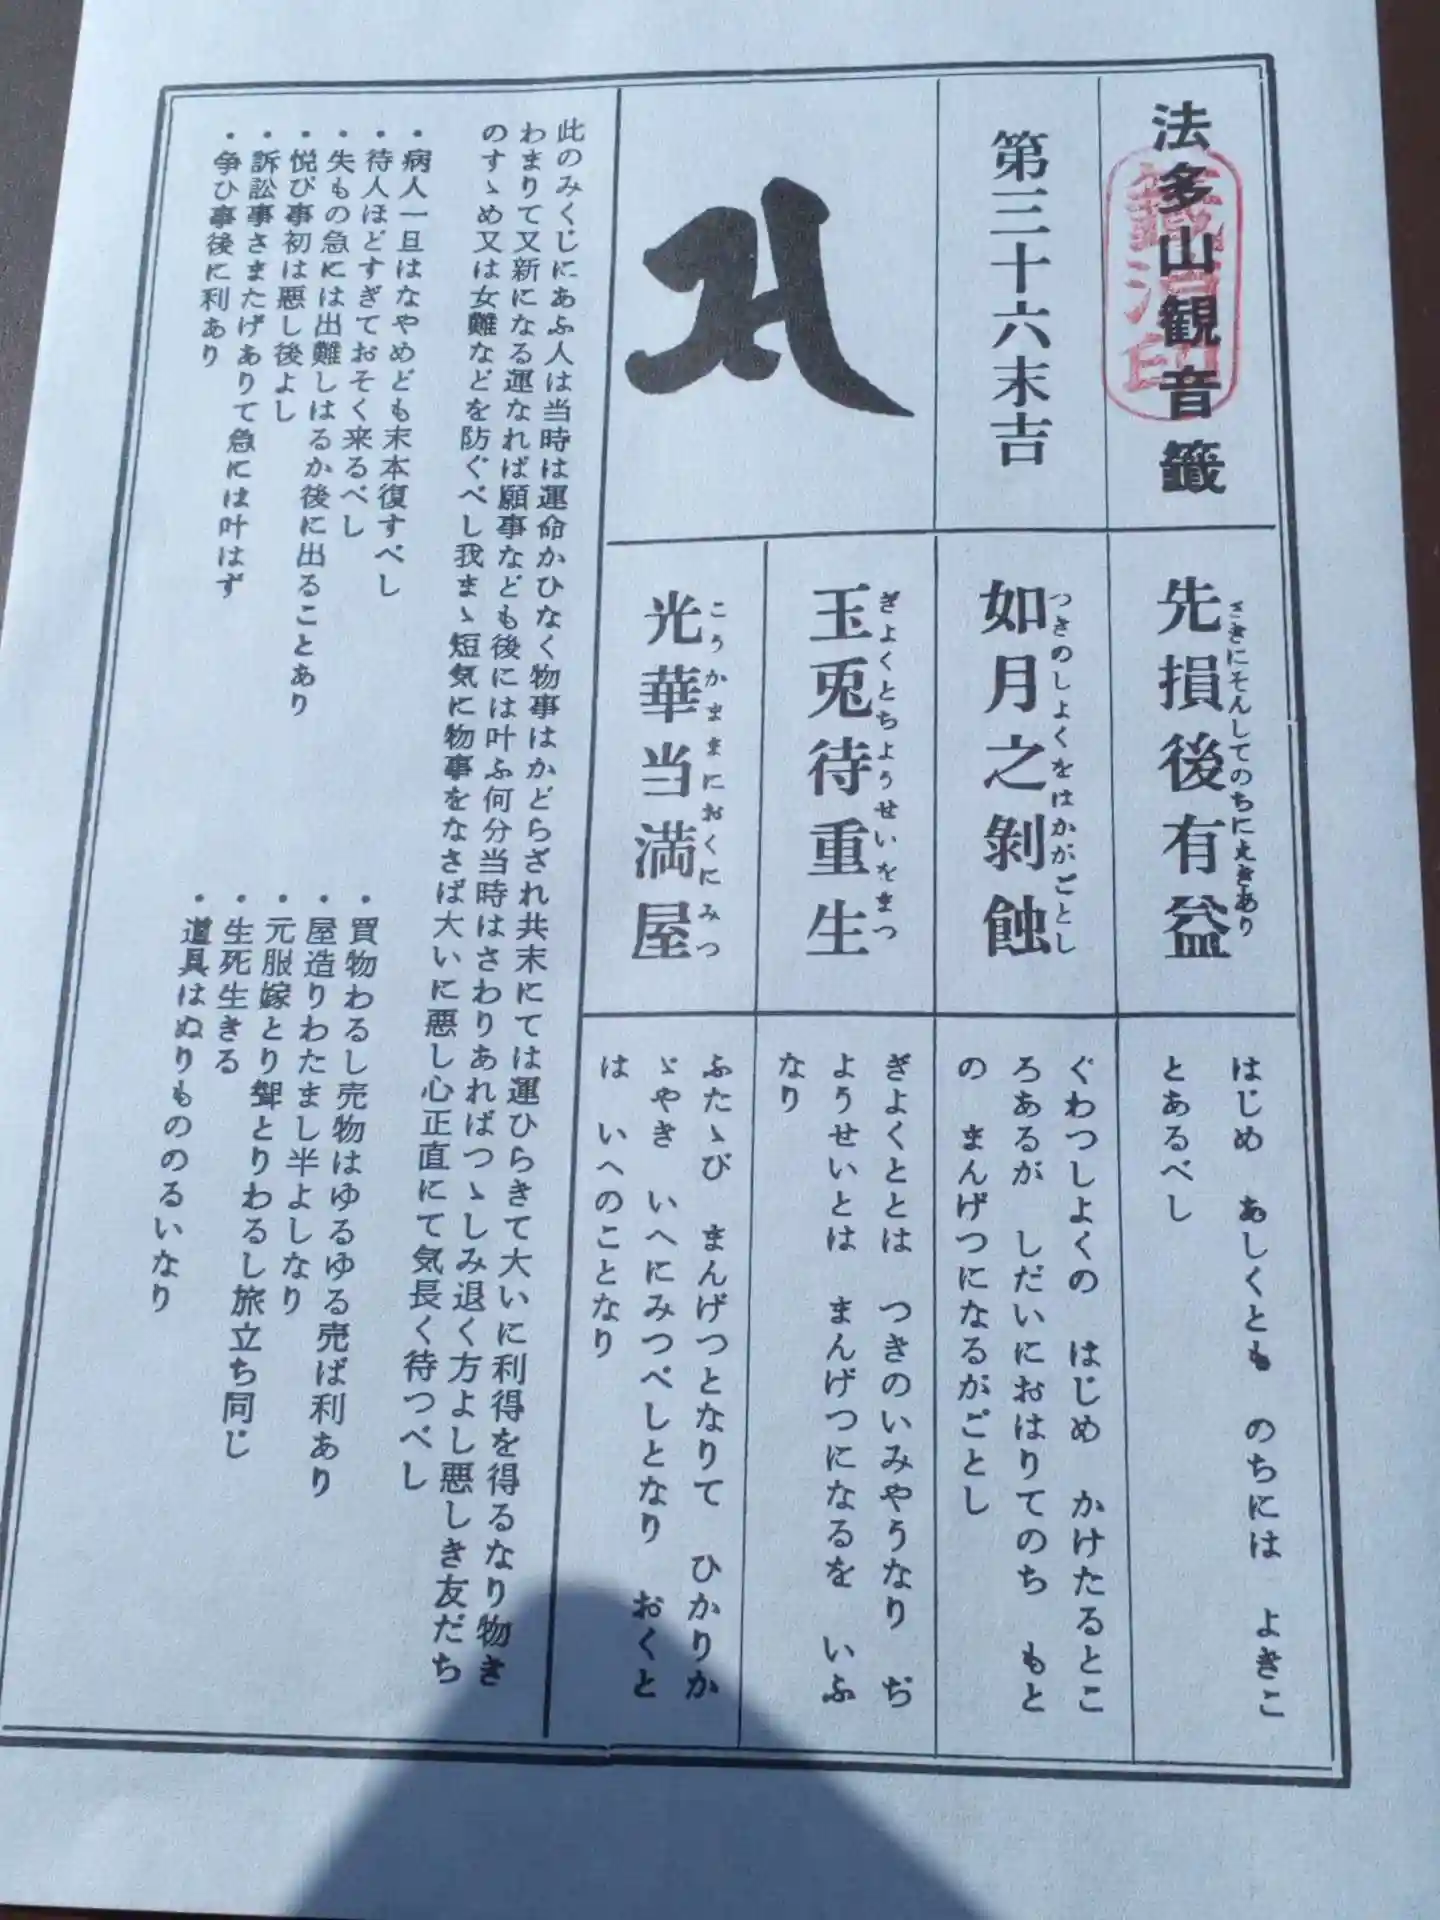 法多山観音籤
第三十六末吉
先損後有益
さきにそんしてのちにえきあり
如月之剝蝕
つきのしよくをはかがごとし
玉兎待重生
ぎよくとちようせいをまつ
光華当満屋
こうかまさにおくにみつ
はじめ あしくとも のちには よきこ
とあるべし
ぐわつしよくの はじめ かけたるとこ
ろあるが しだいにおはりてのち もと
の まんげつになるがごとし
ぎよくととは つきのいみやうなり ぢ
ようせいとは まんげつになるを いふ
なり
ふたゝび まんげつとなりて ひかりか
ゞやき いへにみつべしとなり おくと
は いへのことなり
此のみくじにあふ人は当時は運命かひなく物事はかどらざれ共末にては運ひらきて大いに利得を得るなり物き
わまりて又新になる運なれば願事なども後には叶ふ何分当時はさわりあればつゝしみ退く方よし悪しき友だち
のすゝめ又は女難などを防ぐべし我まゝ短気に物事をなさば大いに悪し心正直にて気長く待つべし
・病人一旦はなやめども末本復すべし
・待人ほどすぎておそく来るべし
・失もの急には出難しはるか後に出ることあり
・悦び事初は悪し後よし
・訴訟事さまたげありて急には叶はず
・争ひ事後に利あり
・買物わるし売物はゆるゆる売ば利あり
・屋造りわたまし半よしなり
・元服嫁とり聟とりわるし旅立ち同じ
・生死生きる
・道具はぬりもののるいなり